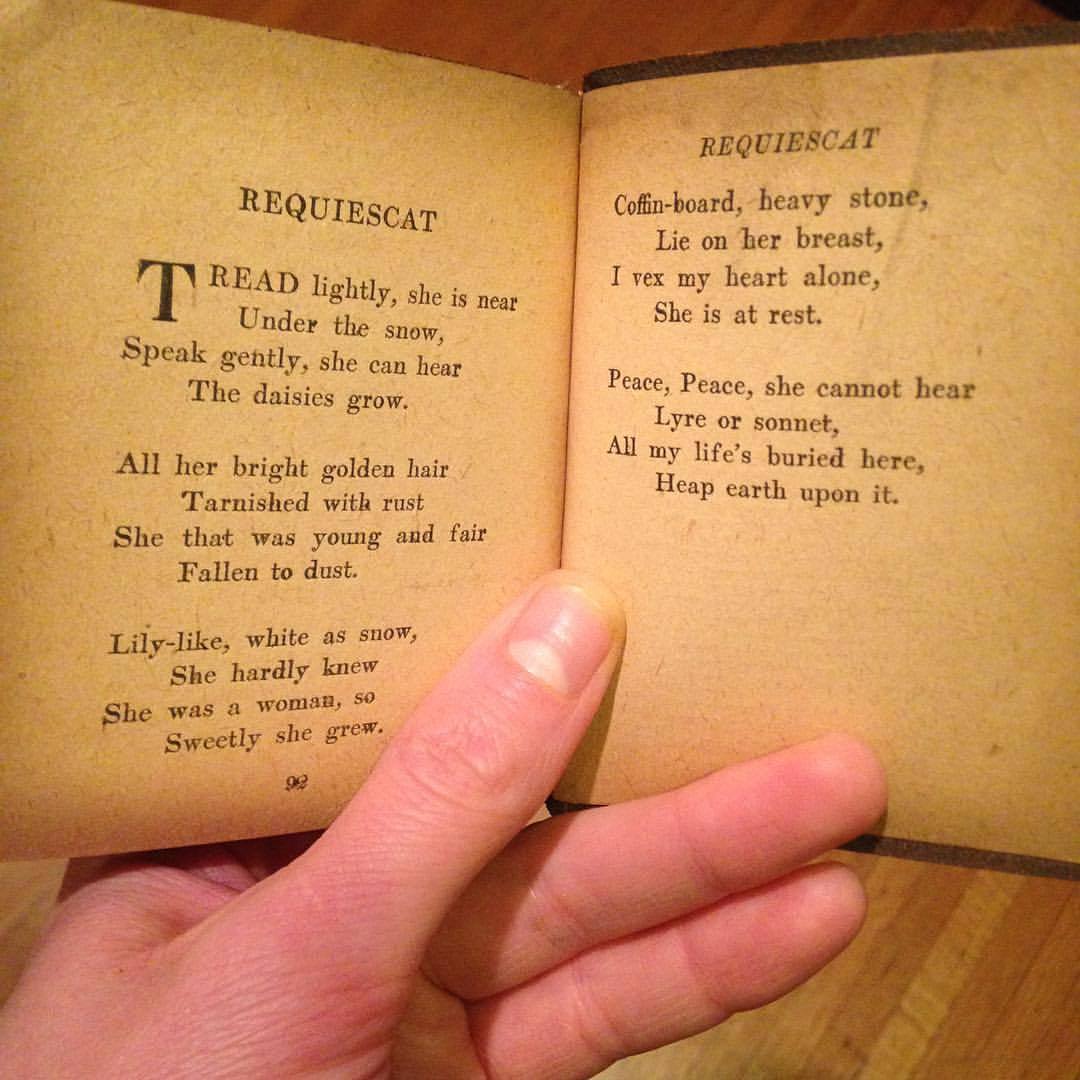 REQUIESCAT
TREAD lightly, she is near
Under the snow,
Speak gently, she can hear
The daisies grow.
All her bright golden hair
Tarnished with rust
She that was young and fair
Fallen to dust.
Lily-like, white as snow,
She hardly knew
She was a woman, so
Sweetly she grew.
92
REQUIESCAT
Coffin-board, heavy stone,
Lie on her breast,
I vex my heart alone,
She is at rest.
Peace, Peace, she cannot hear
Lyre or sonnet,
All my life's buried here,
Heap earth upon it.